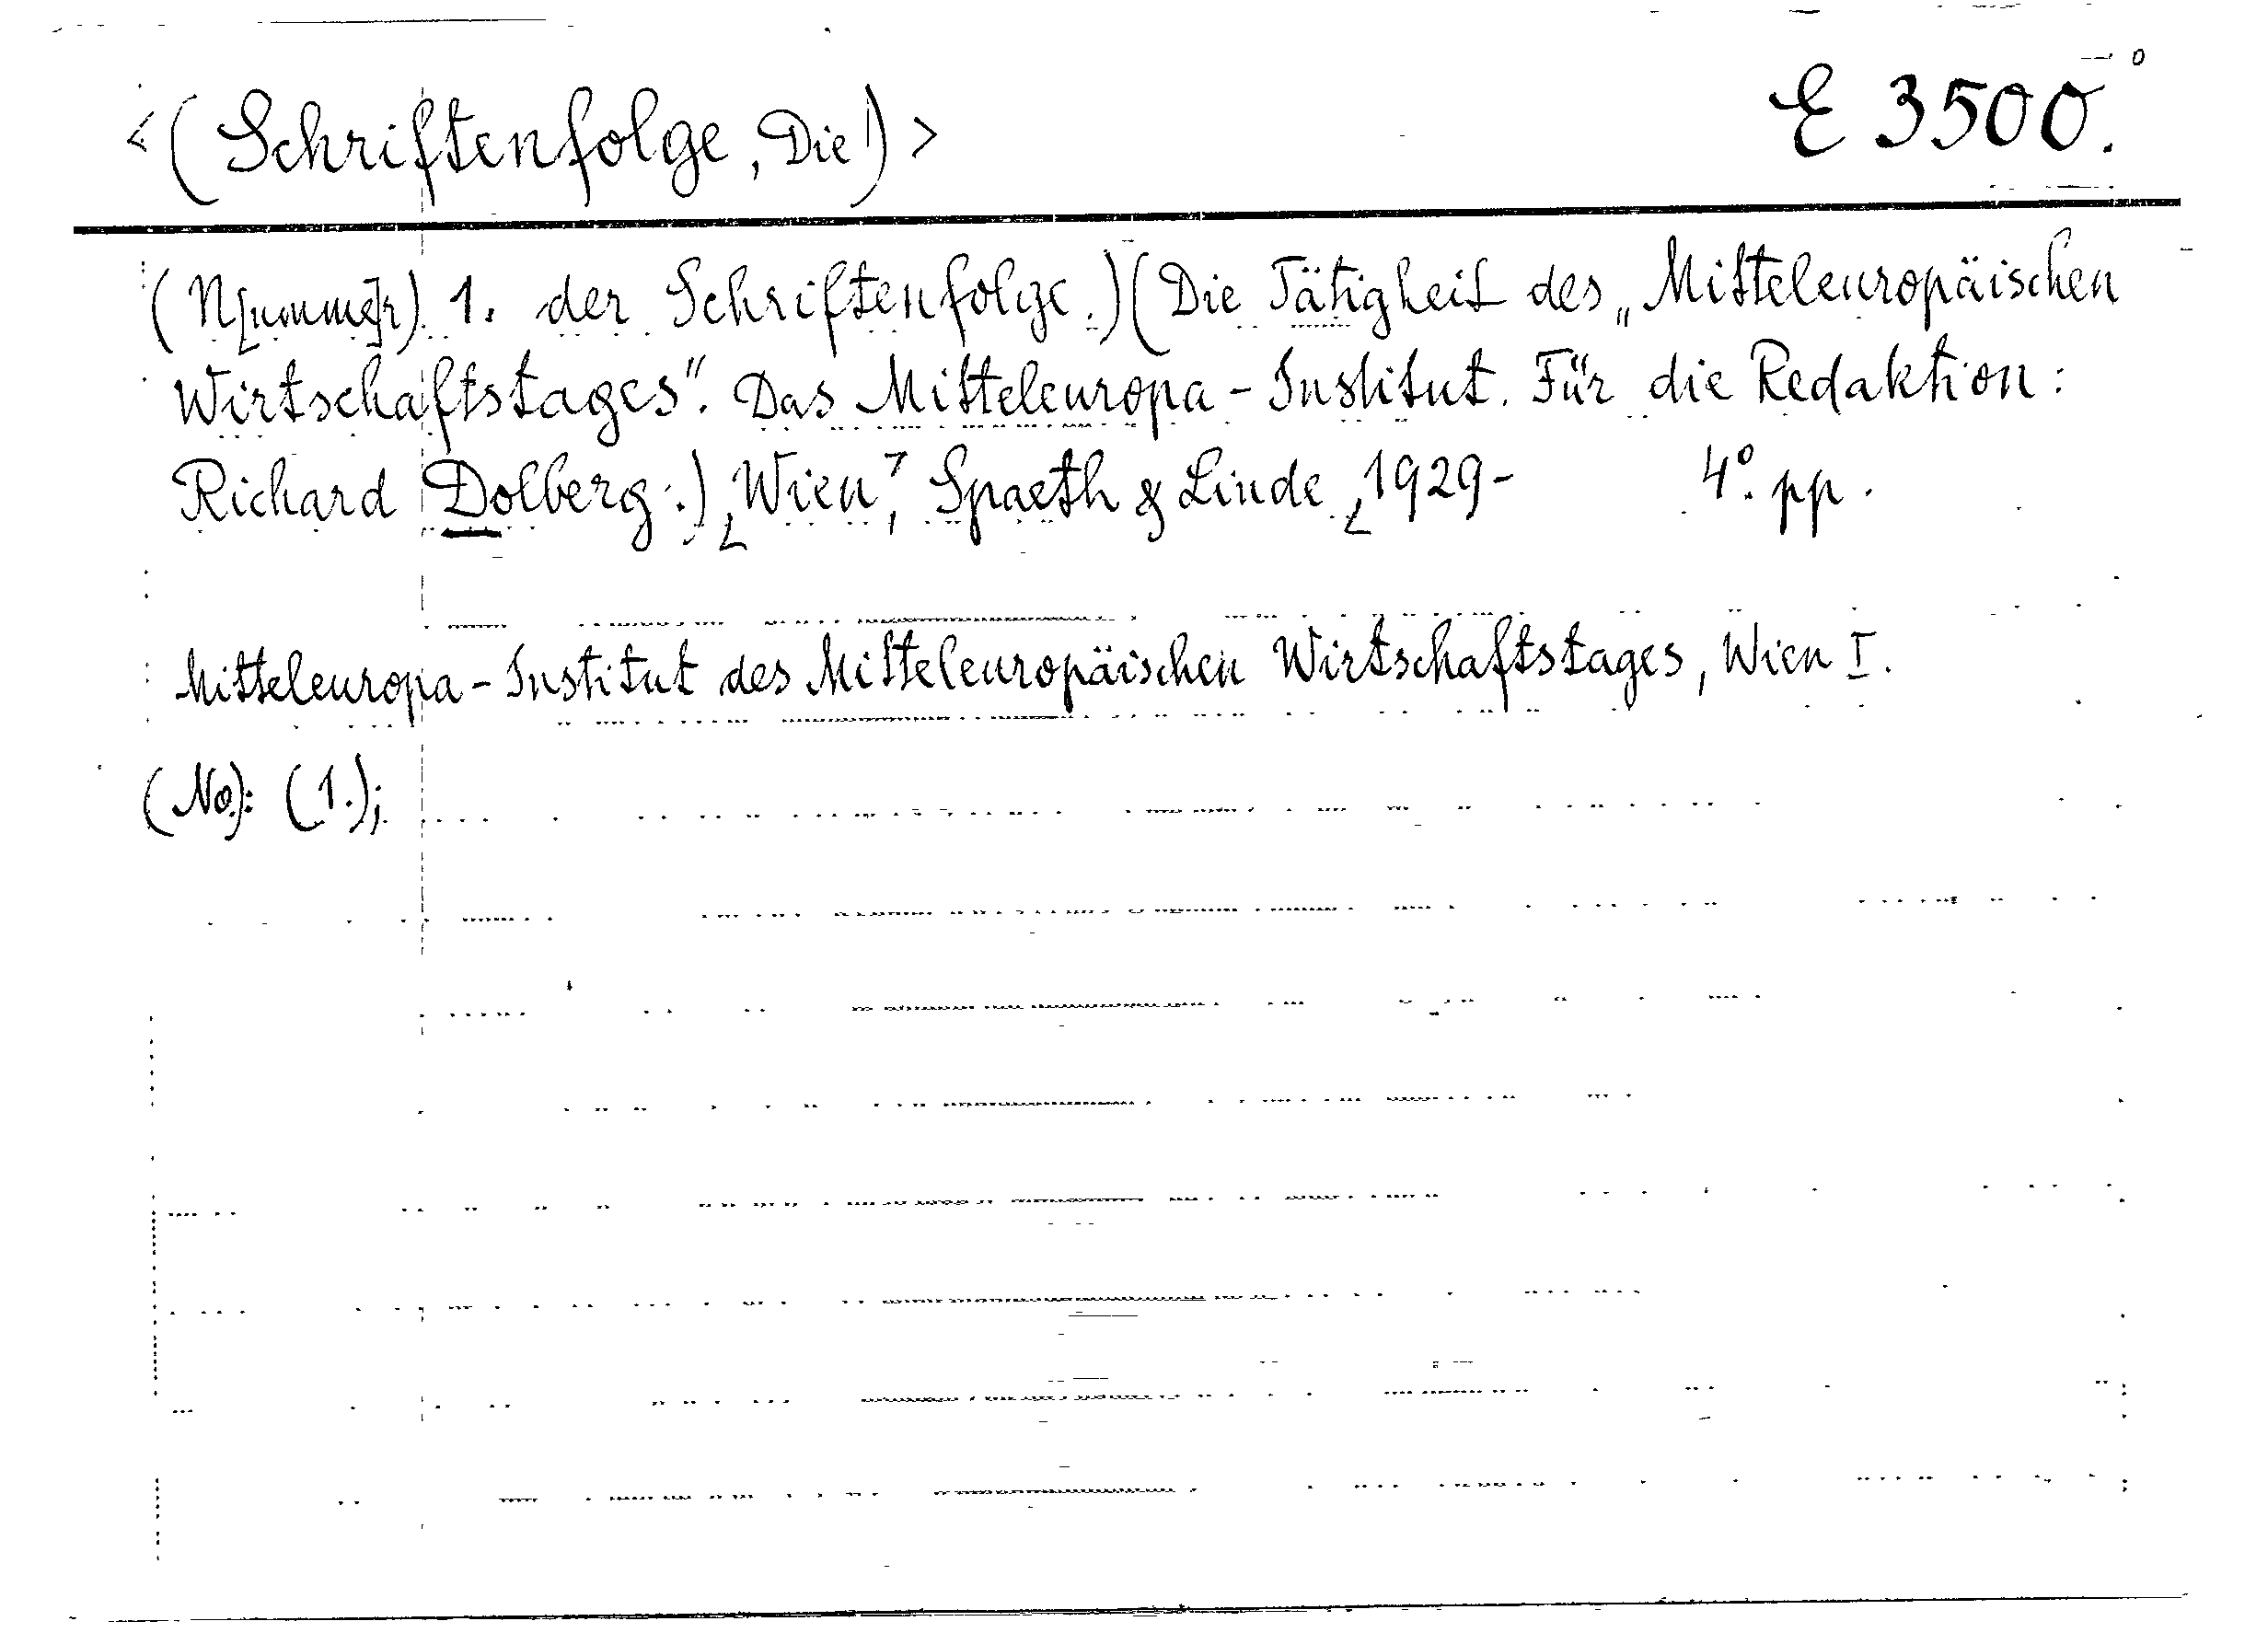 <(Schriftenfolge, Die)> E 3500.
(N[ummer]r) 1. der Schriftenfolge.) (Die Tätigkeit des „Mitteleuropäischen
Wirtschaftstages". Das Mitteleuropa-Institut. Für die Redaktion:
Richard Dolberg.) [Wien], Spaeth & Linde [1929- 4°. pp.
Mitteleuropa-Institut des Mitteleuropäischen Wirtschaftstages, Wien I.
(No): (1.);